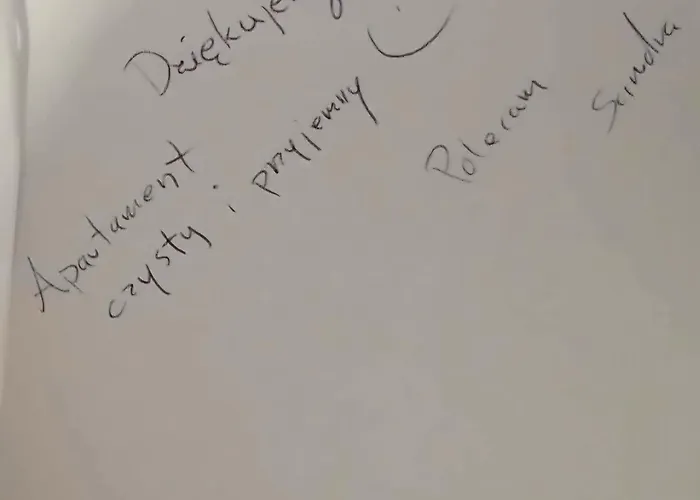 Dziękuję
Apartament
czysty i przyjemny
Polecam